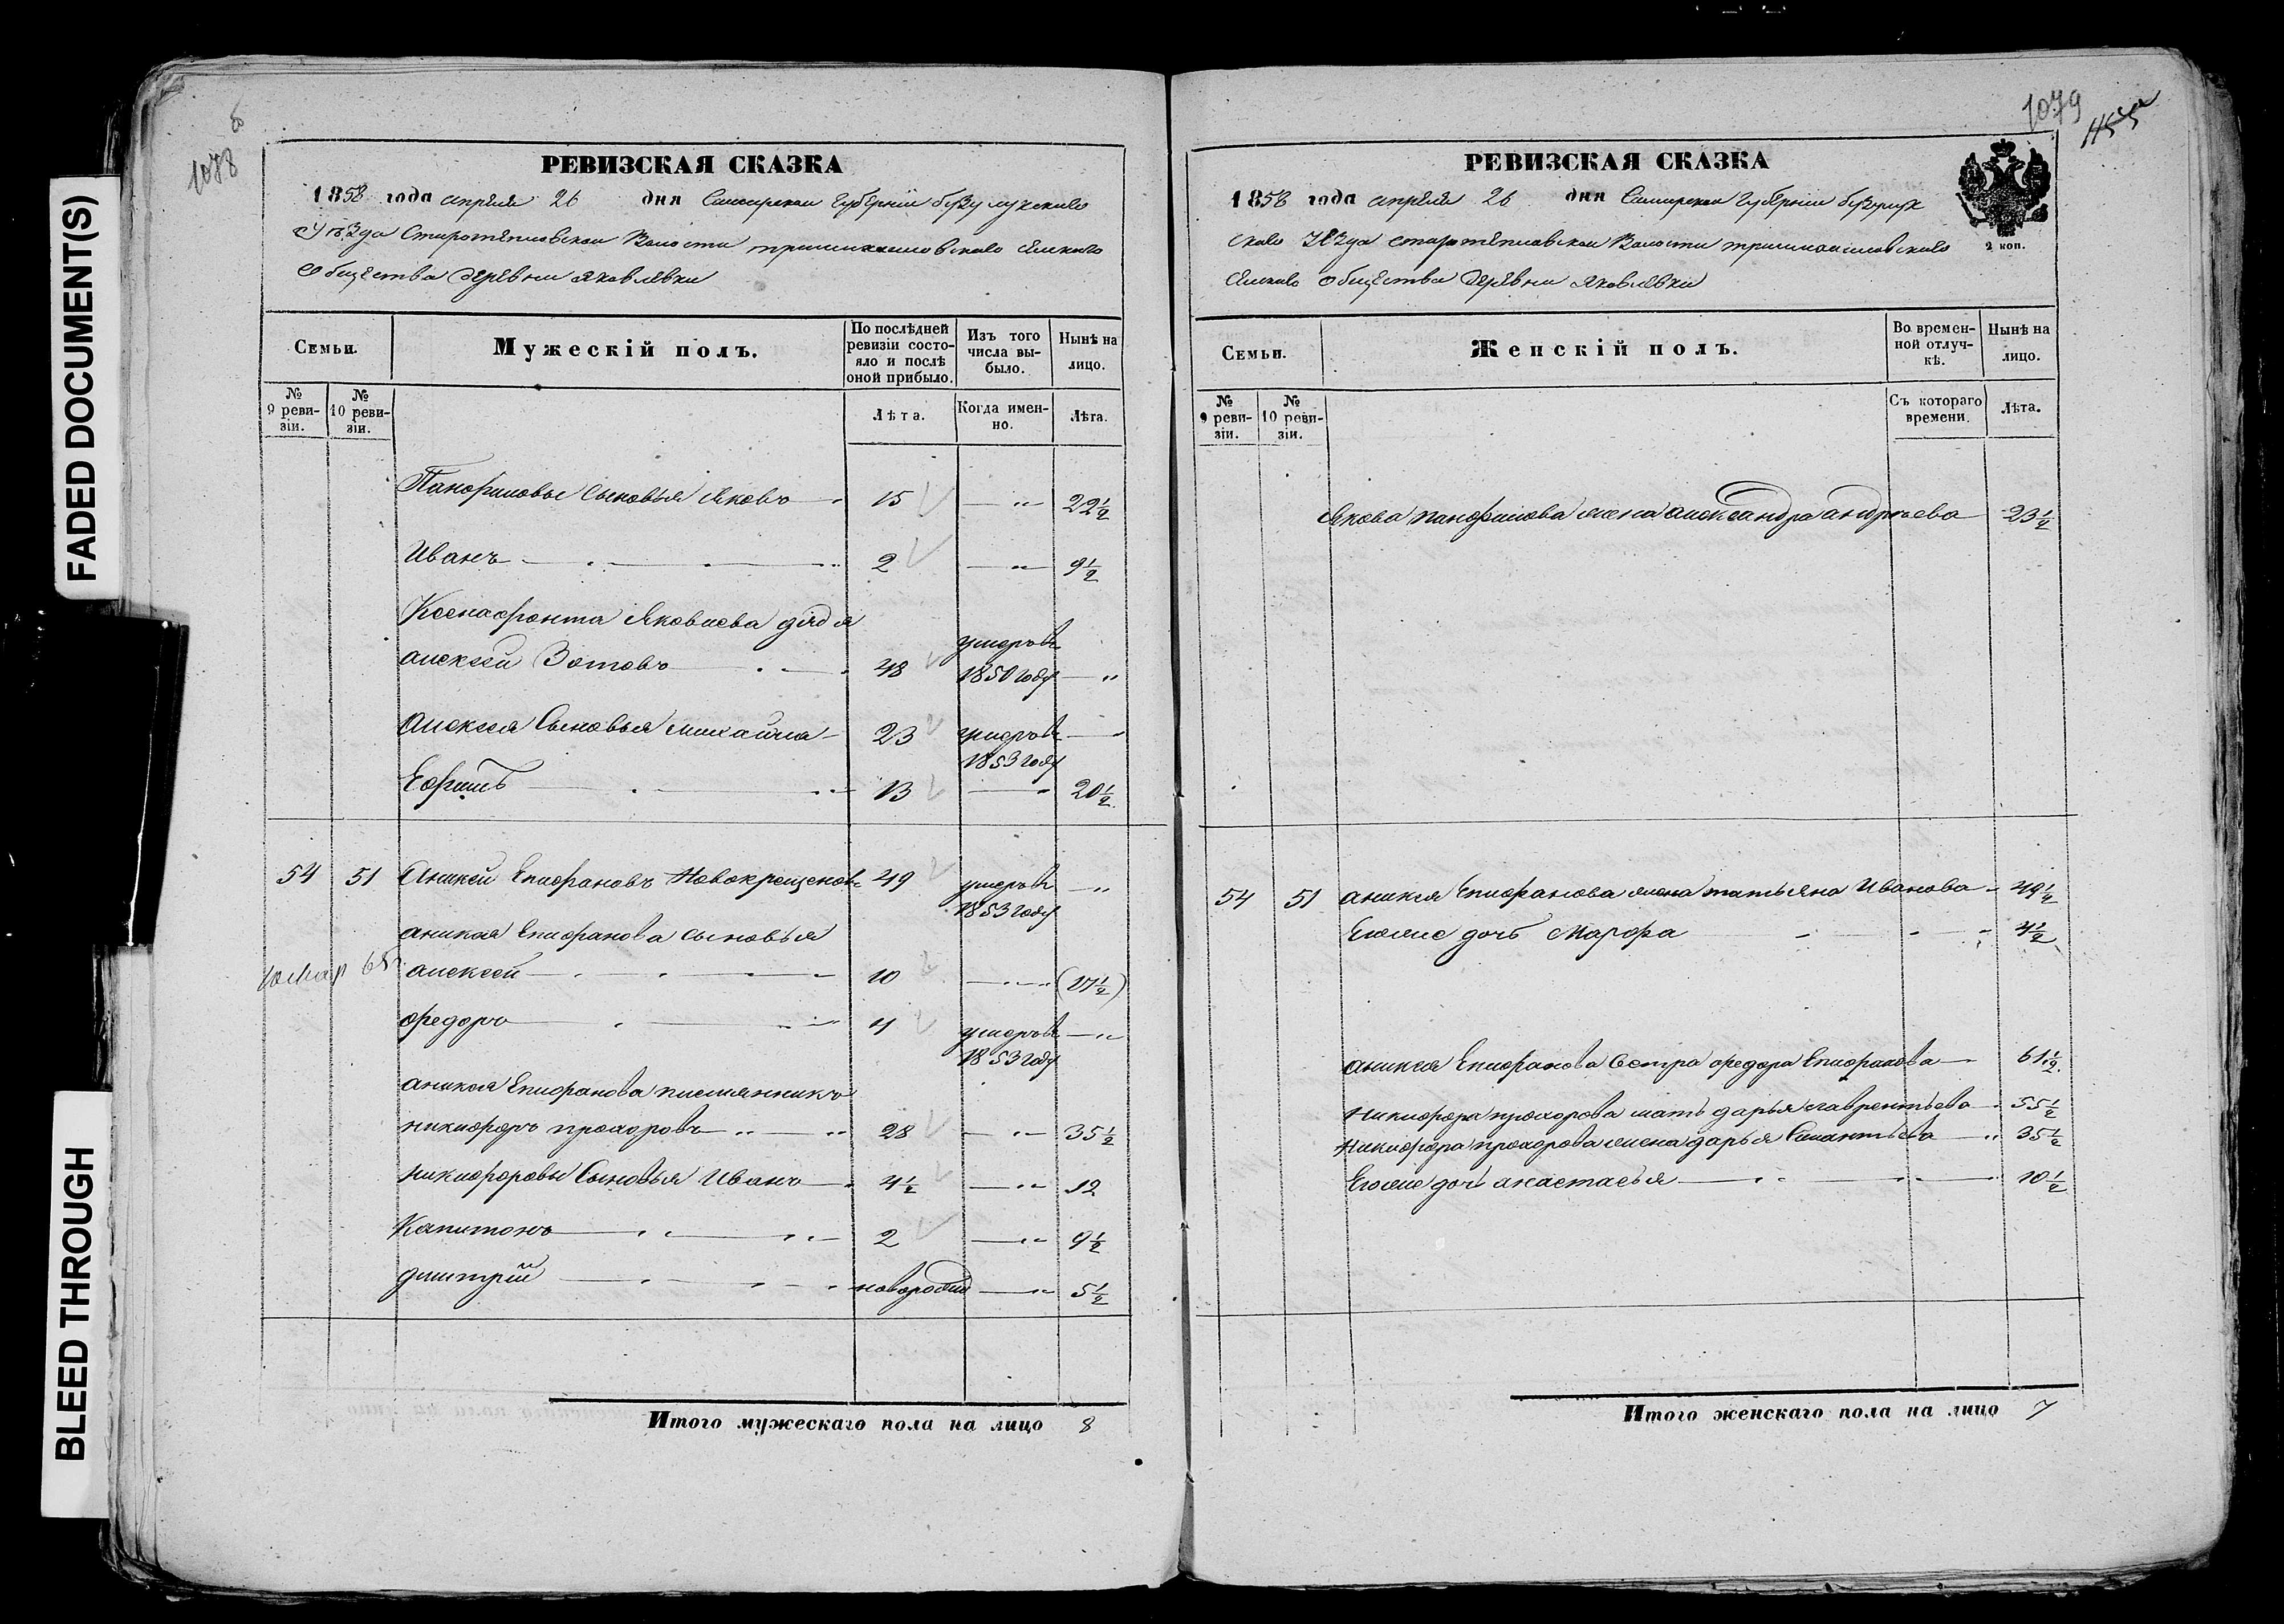 FADED DOCUMENT(S)
BLEED THROUGH
1078
РЕВИЗСКАЯ СКАЗКА
1858 года апреля 26 дня Самарской Губернiи бузулукскаго
Уѣзда Старотепловской Волости селскаго
Общества деревни Яковлевки
Семьи.
Мужескiй полъ.
По послѣдней ревизiи состояло и послѣ оной прибыло.
Изъ того числа выбыло.
Нынѣ на лицо.
№ 9 ревизiи.
№ 10 ревизiи.
Лѣта.
Когда именно.
Лѣта.
Панфиловы Сыновья Яковъ 15 — " 22½
Иванъ 2 — " 9½
Ксенафонта Яковлева дядя
алексей Зотовъ 48 умеръ въ 1850 году — "
Алексея Сыновья михайла 23 умеръ въ 1853 году — "
Ефимъ 13 — " 20½
54 51 Аникей Епифановъ Новокрещеновъ 49 умеръ въ 1853 году — "
аникея Епифанова сыновья
алексей 10 — " (17½)
федоръ 4 умеръ въ 1853 году — "
аникея Епифанова племянникъ
никифоръ прохоровъ 28 — " 35½
никифоровы Сыновья Иванъ 4½ — " 12
Капитонъ 2 — " 9½
дмитрiй новорожд — " 5½
Итого мужескаго пола на лицо 8
1079
РЕВИЗСКАЯ СКАЗКА
2 коп.
1858 года апреля 26 дня Самарской Губернiи бузулук
скаго уезда старотепловской Волости
селскаго Общества деревни Яковлевки
Семьи.
Женскiй полъ.
Во временной отлучкѣ.
Нынѣ на лицо.
№ 9 ревизiи.
№ 10 ревизiи.
Съ котораго времени.
Лѣта.
Якова панфилова жена александра андреева 23½
54 51 аникея Епифанова жена татьяна Иванова 49½
Егоже дочь Марфа 4½
аникея Епифанова Сестра федора Епифанова 61½
никифора прохорова мать дарья лаврентьева 55½
Никифора прохорова жена дарья 35½
Егоже дочь анастасья 10½
Итого женскаго пола на лицо 7